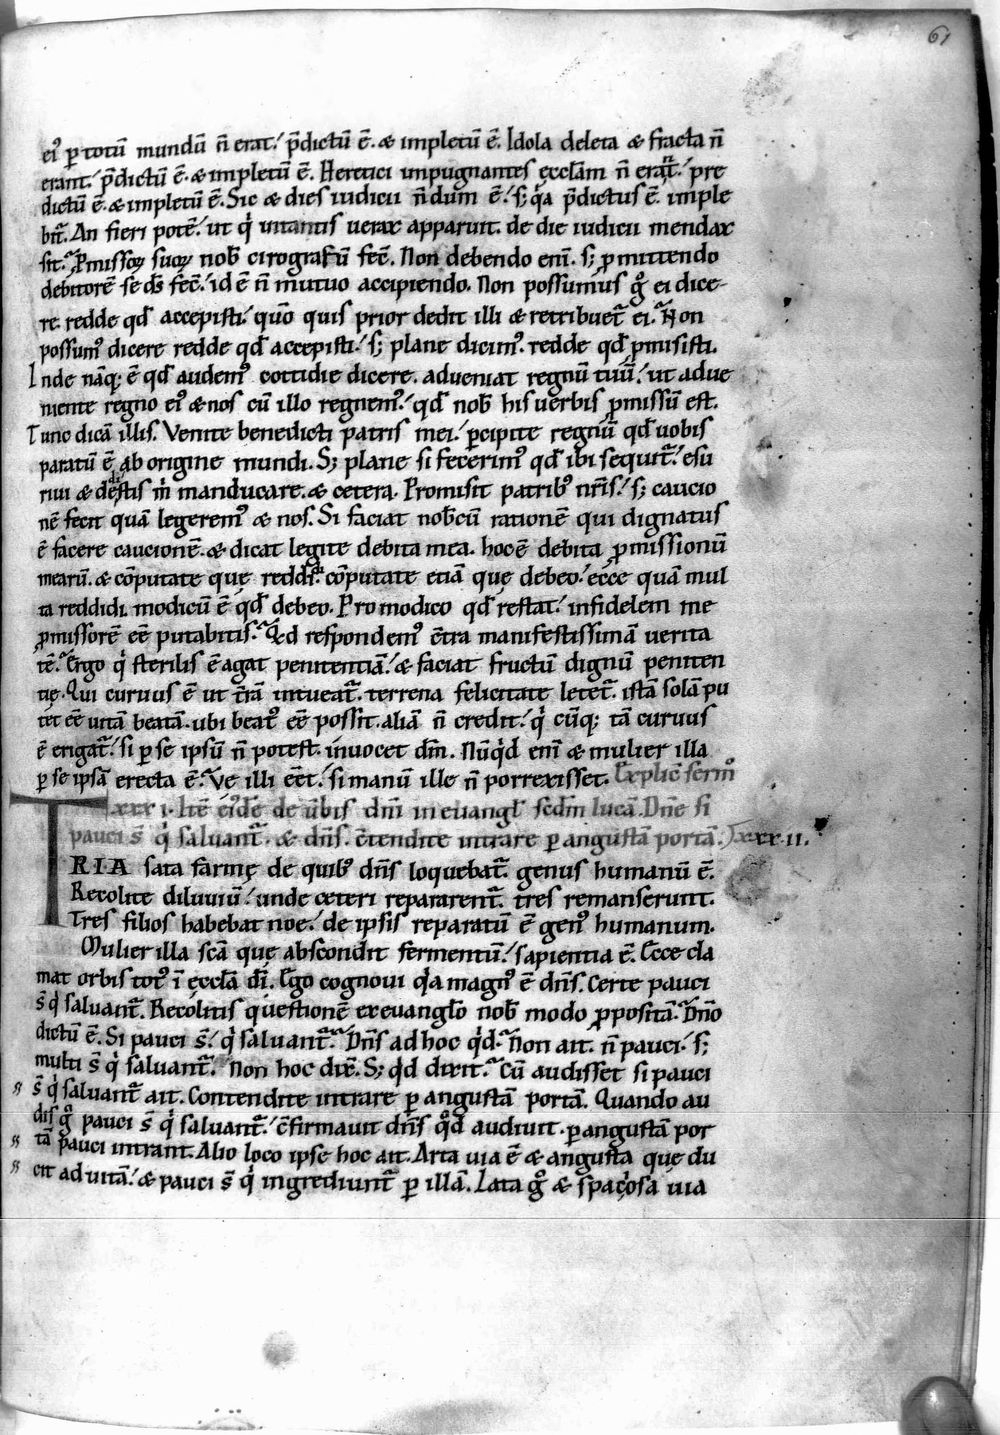 61
ei᷒ ꝑ totū mundū n̄ erat.' p̄dictū ē. & impletū ē. Idola deleta & fracta n̄
erant.' p̄dictū ē. & impletū ē. Heretici inpugnantes ęcclām n̄ erāt.' pre
dictū ē. & impletū ē. Sic & dies iudicii n̄dum ē.' s; q̇a p̄dictus ē. imple
bit̄. An fieri potē.' ut q̇ in tantis uerax apparuit. de die iudicii mendax
sit. Ꝓmissoꝝ suoꝝ nob̄ cirografū fec̄. Non debendo enī. s; ꝓmittendo
debitorē se ds̄ fec̄.' id ē n̄ mutuo accipiendo. Non possumus g̊ ei dice-
re. redde qd̄ accepisti.' quō quis prior dedit illi & retribuet̄ ei. Non
possum᷒ dicere redde qd̄ accepisti.' s; plane dicim᷒. redde qd̄ ꝓmisisti.
Inde nāq; ē qd̄ audem᷒ cottidie dicere. adveniat regnū tuū.' ut adue
niente regno ei᷒ & nos cū illo regnem᷒.' qd̄ nob̄ his uerbis ꝓmissū est.
Tunc dicā illis. Venite benedicti patris mei.' ꝑcipite regnū qd̄ uobis
paratū ē ab origine mundi. S; plane si fecerim᷒ qd̄ ibi sequit̄.' esu
riui & dedistis m̄ manducare. & cetera. Promisit patrib᷒ nr̄is.' s; caucio
nē fecit quā legerem᷒ & nos. Si faciat nob̄cū rationē qui dignatus
ē facere caucionē. & dicat legite debita mea. hoc ē debita ꝓmissionū
mearū. & cōputate quę reddidi. cōputate etiā quę debeo.' ecce quā mul
ta reddidi. modicū ē qd̄ debeo. Pro modico qd̄ restat.' infidelem me
ꝓmissorē eē putabitis. Qd respondem᷒ c̄tra manifestissimā uerita
tē. Ergo q̇ sterilis ē agat penitentiā.' & faciat fructū dignū peniten
tię. Qui curuus ē ut t̄rā intueat̄. terrena felicitate letet̄. istā solā pu
tet eē uitā beatā. ubi beat᷒ eē possit. aliā n̄ credit.' q̇ cūq; tā curuus
ē erigat̄.' si ꝑ se ipsū n̄ potest. invocet dm̄. Nūq̇d enī & mulier illa
ꝑ se ipsā erecta ē. Vę illi eēt.' si manū ille n̄ porrexisset. Explic̄ sermo
.lxxxi. Itē ei᷒dē de ūbis dn̄i in euangl̄ scdm̄ lucā. Dn̄e si
pauci s̄ q̇ saluant̄. & dn̄s. c̄tendite intrare ꝑ angustā portā. lxxxii.
TRIA sata farinę de quib᷒ dn̄s loquebat̄. genus humanū ē.
Recolite diluuiū.' unde ceteri repararent̄. tres remanserunt.
Tres filios habebat noe.' de ipsis reparatū ē gen᷒ humanum.
Mulier illa scā quę abscondit fermentū.' sapientia ē. Ecce cla
mat orbis tot᷒ ī ęccl̄a dī. Ego cognoui q̇a magn᷒ ē dn̄s. Certe pauci
s̄ q̇ saluant̄. Recolitis questionē ex euangl̄o nob̄ modo ꝓpositā. Dn̄o
dictū ē. Si pauci s̄.' q̇ saluant̄. Dn̄s ad hoc q̇d. Non ait. n̄ pauci.' s;
multi s̄ q̇ saluant̄. Non hoc dix̄. S; q̇d dixit. Cū audisset si pauci
s̄ q̇ saluant̄ ait. Contendite intrare ꝑ angustā portā. Quando au
dis g̊ pauci s̄ q̇ saluant̄.' c̄firmauit dn̄s q̊d audiuit. ꝑ angustā por
tā pauci intrant. Alio loco ipse hoc ait. Arta uia ē & angusta quę du
cit ad uitā.' & pauci s̄ q̇ ingrediunt̄ ꝑ illā. Lata g̊ & spaciosa uia